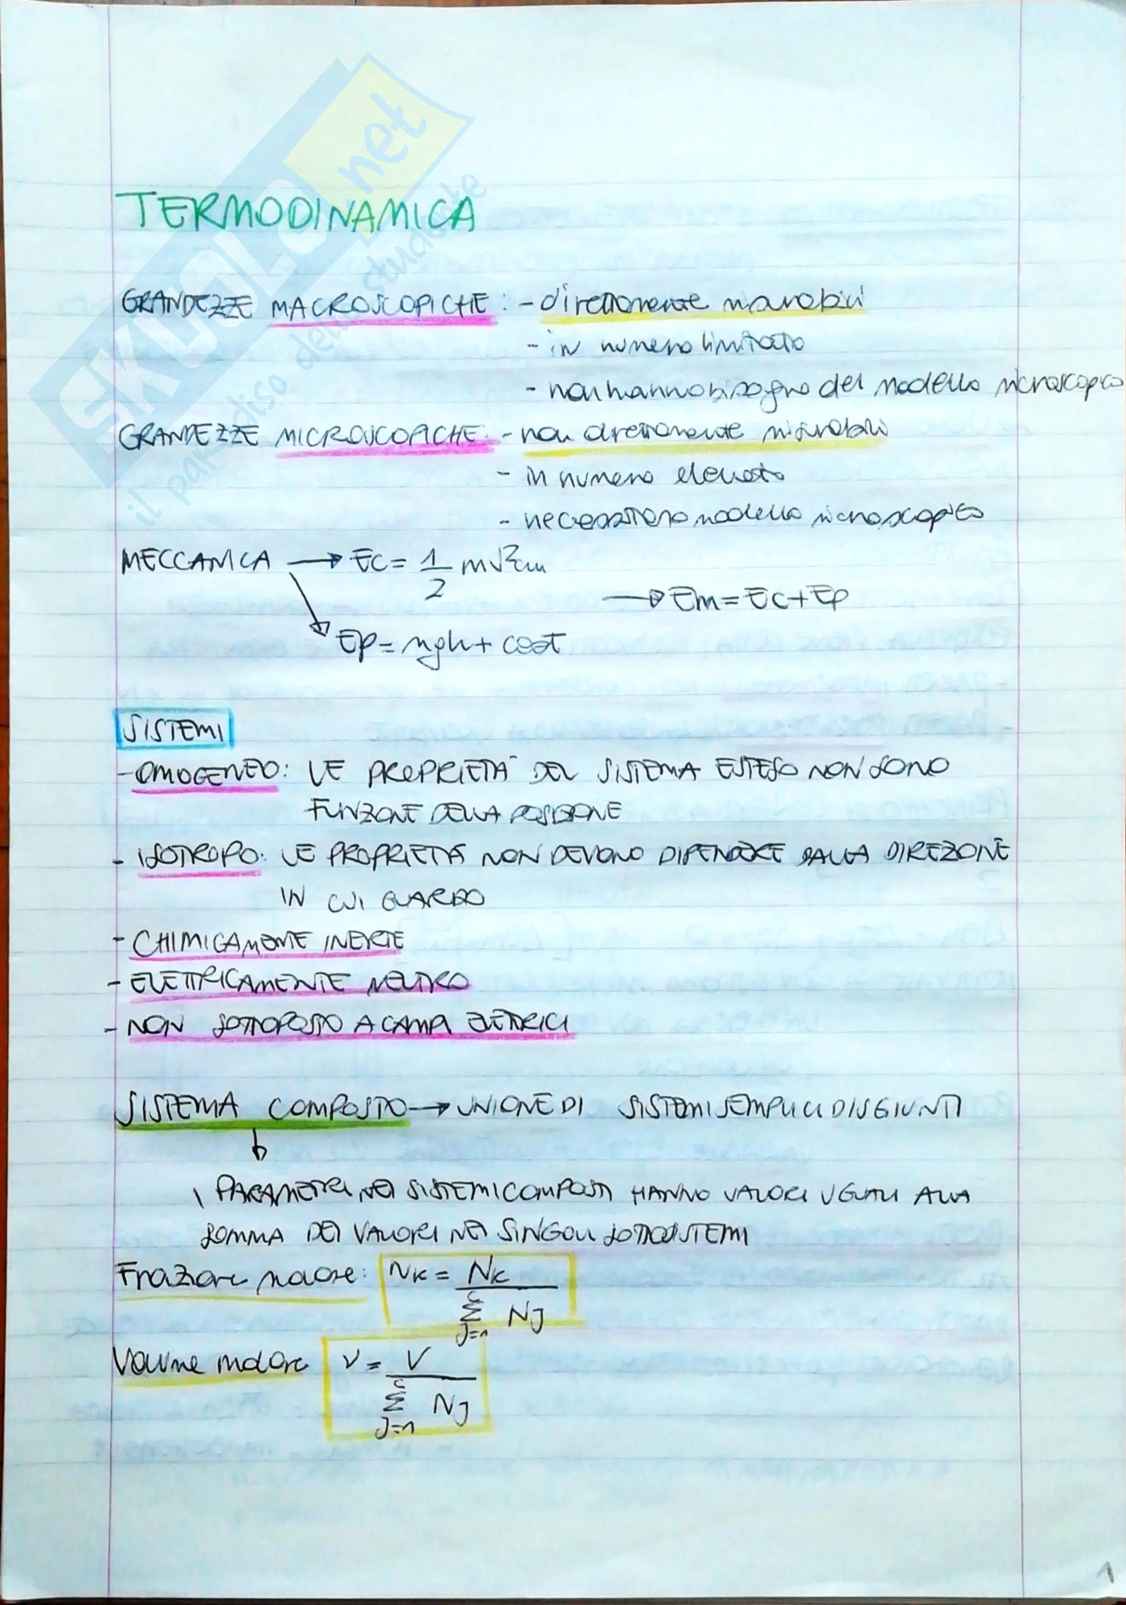 SKUOLA.net
il paradiso dello studente
TERMODINAMICA
GRANDEZZE MACROSCOPICHE: - direttamente misurabili
- in numero limitato
- non hanno bisogno del modello microscopico
GRANDEZZE MICROSCOPICHE: - non direttamente misurabili
- in numero elevato
- necessitano modello microscopico
MECCANICA → Ec = 1/2 mv²cm
→ Em = Ec + Ep
Ep = mgh + cost
SISTEMI
- OMOGENEO: LE PROPRIETÀ DEL SISTEMA ESTESO NON SONO
FUNZIONE DELLA POSIZIONE
- ISOTROPO: LE PROPRIETÀ NON DEVONO DIPENDERE DALLA DIREZIONE
IN CUI GUARDO
- CHIMICAMENTE INERTE
- ELETTRICAMENTE NEUTRO
- NON SOTTOPOSTO A CAMPI ELETTRICI
SISTEMA COMPOSTO → UNIONE DI SISTEMI SEMPLICI DISGIUNTI
I PARAMETRI NEI SISTEMI COMPOSTI HANNO VALORI UGUALI ALLA
SOMMA DEI VALORI NEI SINGOLI SOTTOSISTEMI
Frazione molare: Nk = Nk / Σ(j=1, c) Nj
Volume molare v = V / Σ(j=1, c) Nj
1